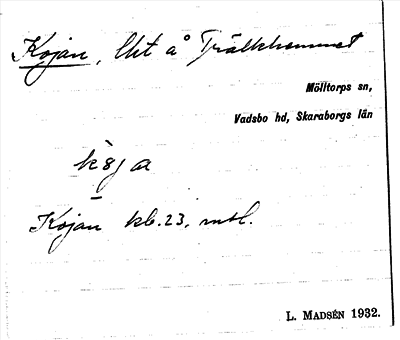 Kojan, lht å Trälhemmet
Mölltorps sn,
Vadsbo hd, Skaraborgs län
Kojan kb. 23, mtl.
L. MADSÉN 1932.